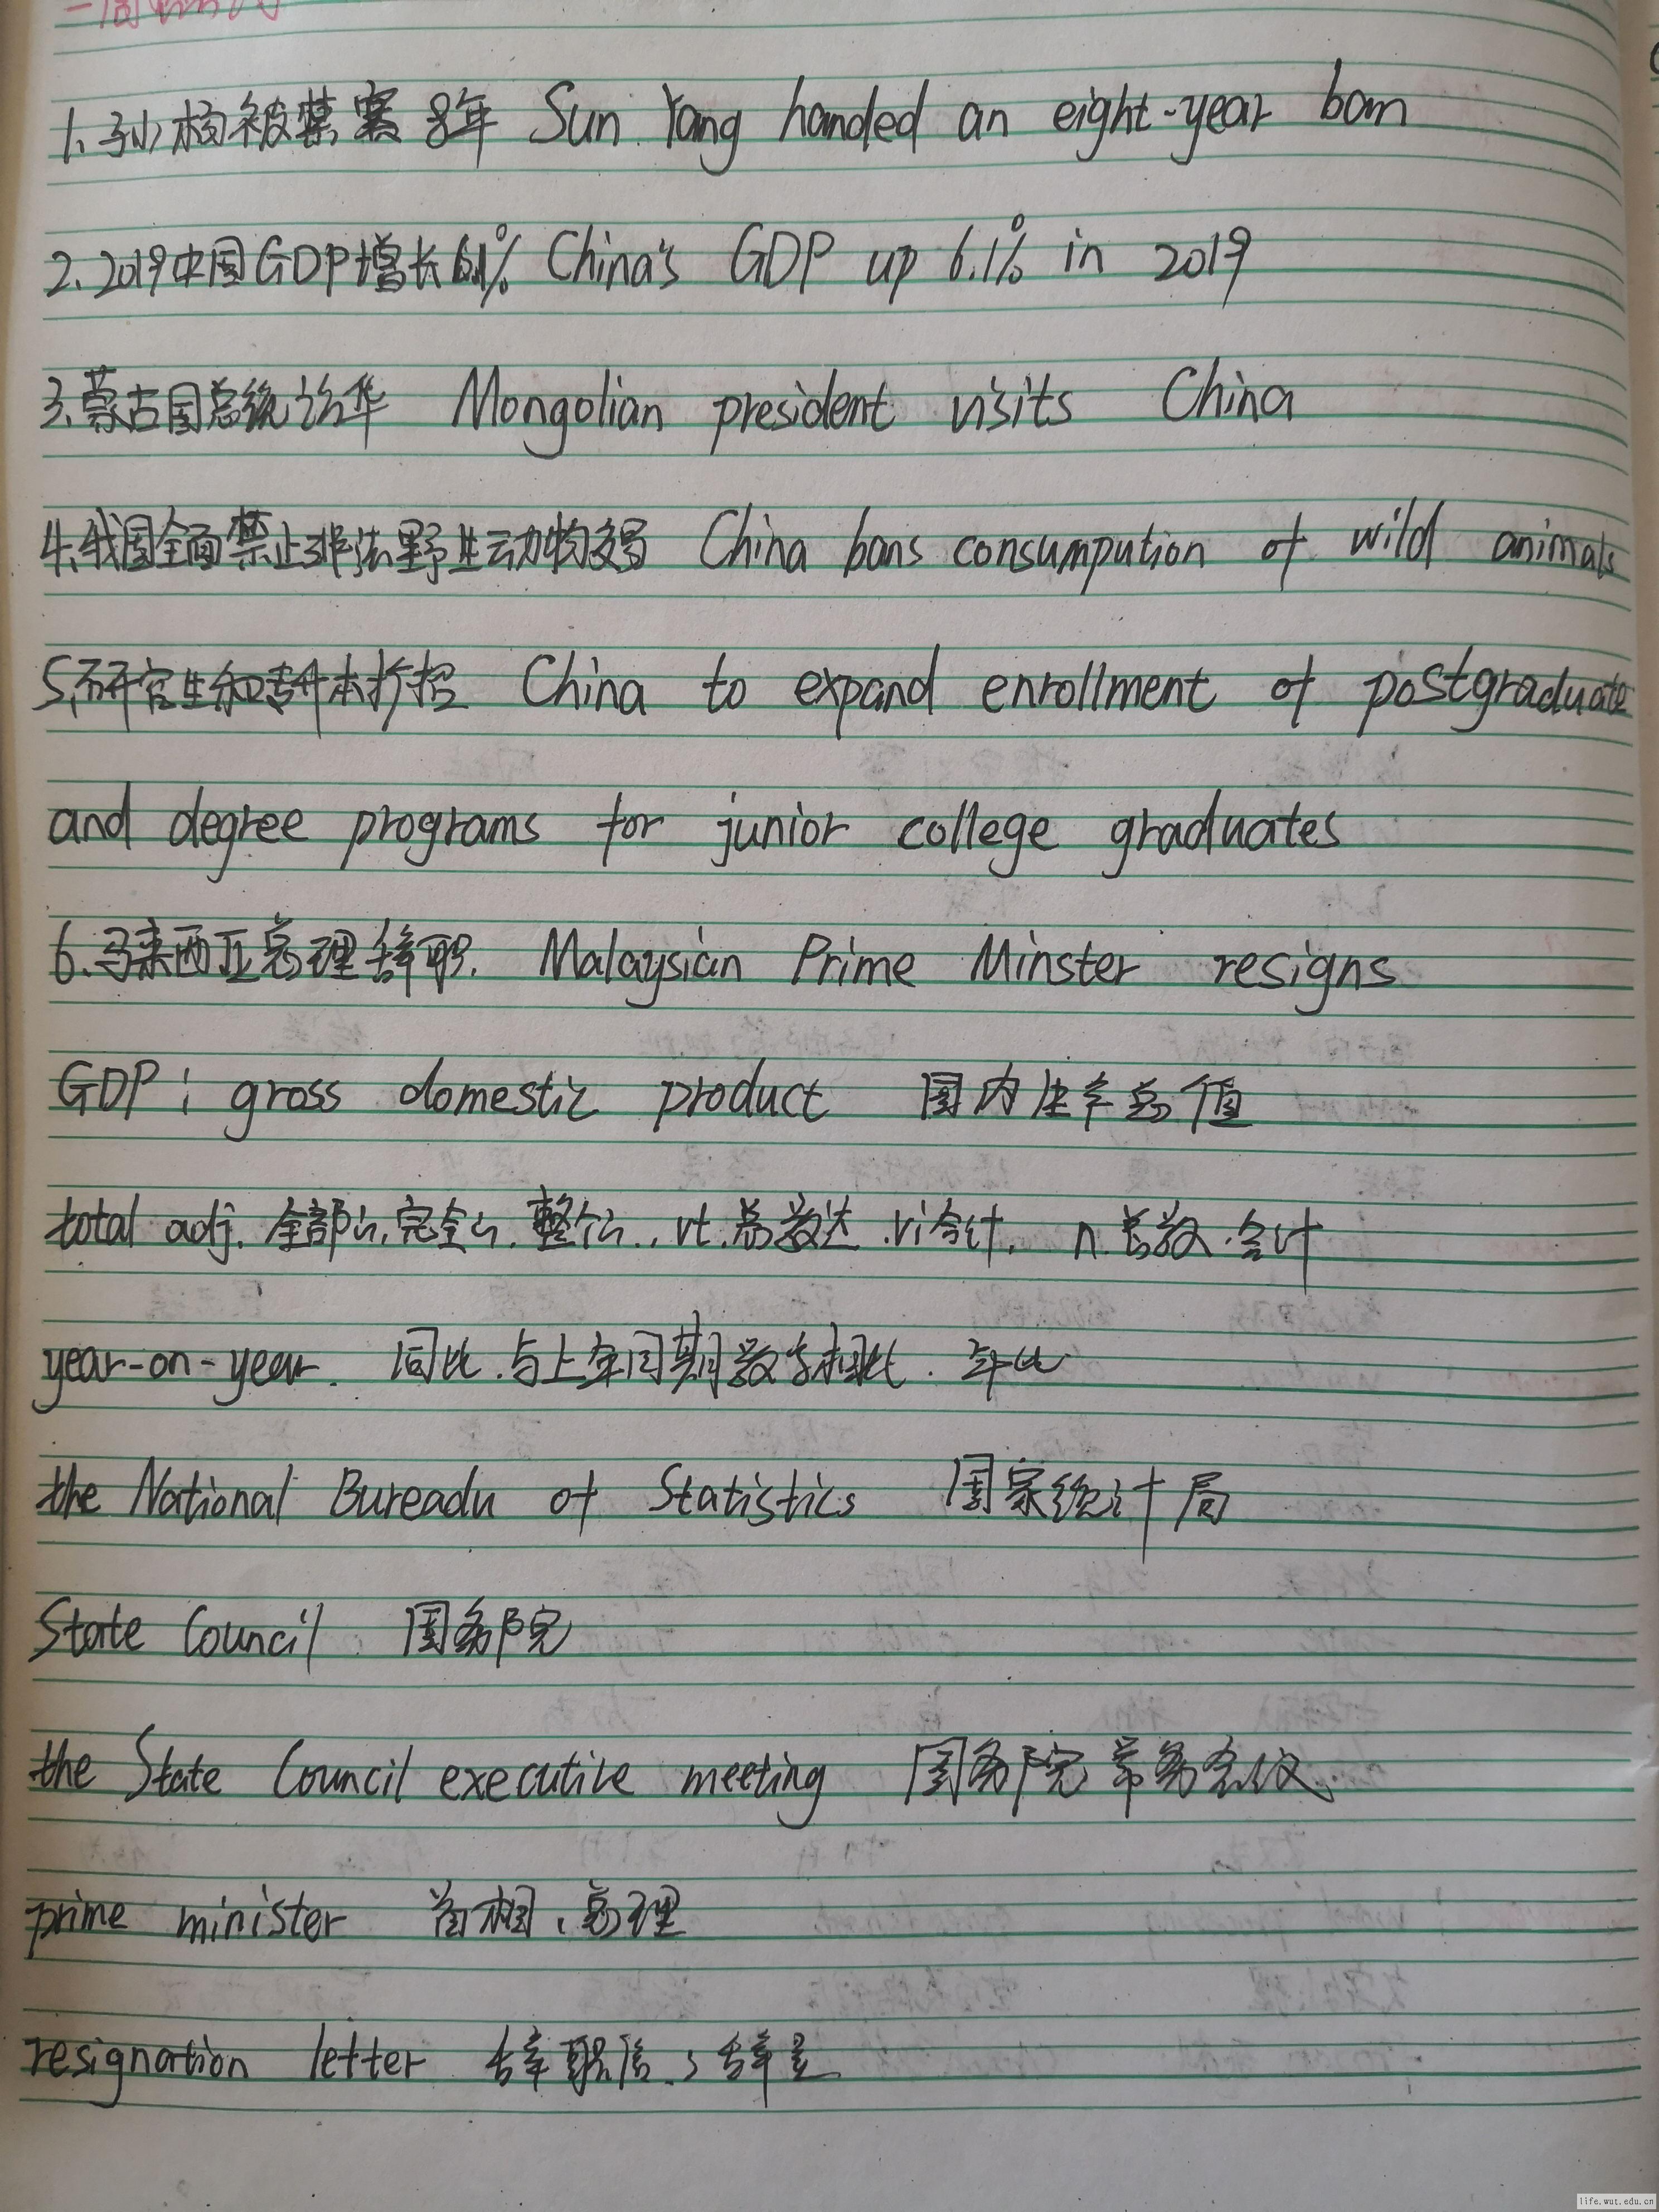 1.孙杨被禁赛8年 Sun Yang handed an eight-year ban
2.2019中国GDP增长6.1% China's GDP up 6.1% in 2019
3.蒙古国总统访华 Mongolian president visits China
4.我国全面禁止非法野生动物交易 China bans consumpution of wild animals
5.研究生和专升本扩招 China to expand enrollment of postgraduate
and degree programs for junior college graduates
6.马来西亚总理辞职. Malaysian Prime Minster resigns
GDP: gross domestic product 国内生产总值
total adj. 全部的,完全的,整个的., vt.总数达.vi合计. n.总数.合计
year-on-year. 同比.与上年同期数字相比.年比
the National Bureadu of Statistics 国家统计局
State Council 国务院
the State Council executive meeting 国务院常务会议
prime minister 首相、总理
resignation letter 辞职信、辞呈
life.wut.edu.cn